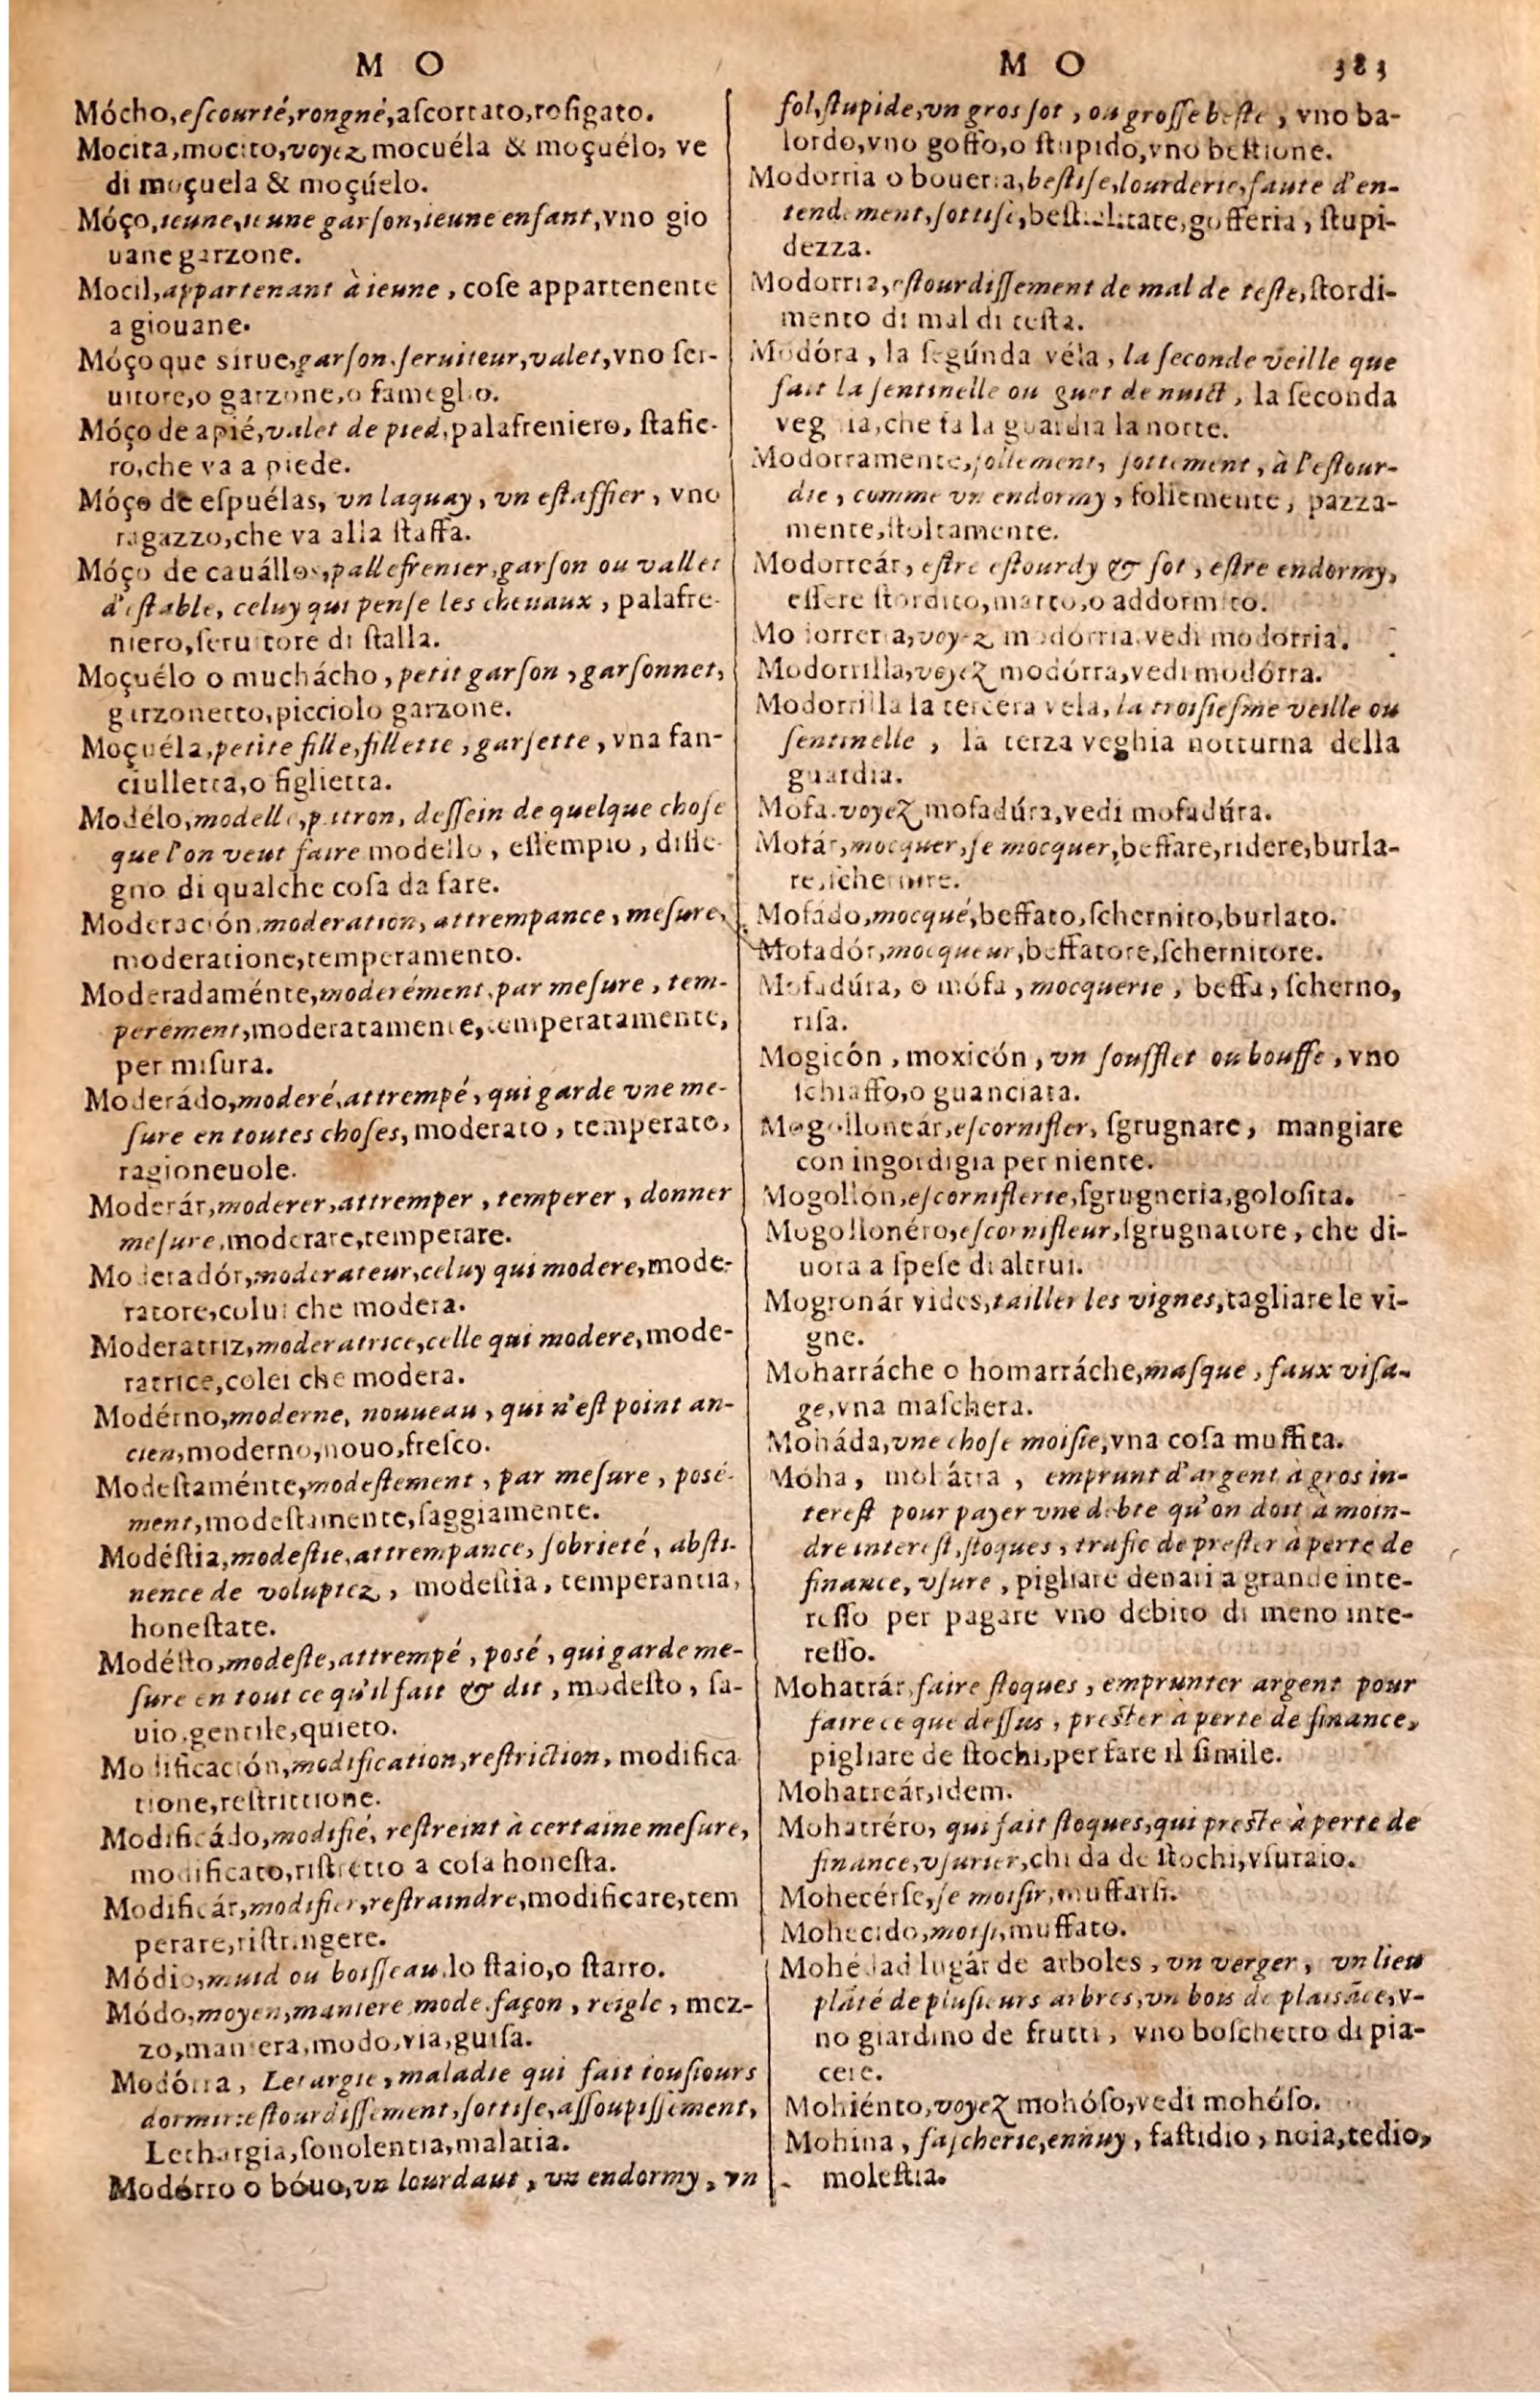 M O
Mócho, eſcourté, rongné, aſcortato, roſigato.
Mocita, mocito, voyez mocuéla & moçuélo, ve
di moçuela & moçúelo.
Móço, ieune, ieune garſon, ieune enfant, vno gio
uane garzone.
Mocil, appartenant à ieune, coſe appartenente
a giouane.
Móço que sirue, garſon. ſeruiteur, valet, vno ſer-
uitore, o garzone, o fameglio.
Móço de a pié, valet de pied, palafreniero, ſtafie-
ro, che va a piede.
Móço de eſpuélas, vn laquay, vn eſtaffier, vno
ragazzo, che va alla ſtaffa.
Móço de cauállos, pallefrenier, garſon ou vallet
d'eſtable, celuy qui penſe les cheuaux, palafre-
niero, ſeruitore di ſtalla.
Moçuélo o muchácho, petit garſon, garſonnet,
garzonetto, picciolo garzone.
Moçuéla, petite fille, fillette, garſette, vna fan-
ciulletta, o figlietta.
Modélo, modelle, patron, deſſein de quelque choſe
que l'on veut faire modello, eſſempio, diſſe-
gno di qualche coſa da fare.
Moderación, moderation, attrempance, meſure,
moderatione, temperamento.
Moderadaménte, moderément, par meſure, tem-
perément, moderatamente, temperatamente,
per miſura.
Moderádo, moderé, attrempé, qui garde vne me-
ſure en toutes choſes, moderato, temperato,
ragioneuole.
Moderár, moderer, attremper, temperer, donner
meſure, moderare, temperare.
Moderadór, moderateur, celuy qui modere, mode-
ratore, colui che modera.
Moderatriz, moderatrice, celle qui modere, mode-
ratrice, colei che modera.
Modérno, moderne, nouueau, qui n'eſt point an-
cien, moderno, nouo, freſco.
Modeſtaménte, modeſtement, par meſure, posé-
ment, modeſtamente, ſaggiamente.
Modéſtia, modeſtie, attrempance, ſobrieté, abſti-
nence de voluptez, modeſtia, temperantia,
honeſtate.
Modéſto, modeſte, attrempé, posé, qui garde me-
ſure en tout ce qu'il fait & dit, modeſto, ſa-
uio, gentile, quieto.
Modificación, modification, reſtriction, modifica
tione, reſtrittione.
Modificádo, modifié, reſtreint à certaine meſure,
modificato, riſtretto a coſa honeſta.
Modificár, modifier, reſtraindre, modificare, tem
perare, riſtringere.
Módio, muid ou boiſſeau, lo ſtaio, o ſtarro.
Módo, moyen, maniere, mode, façon, reigle, mez-
zo, maniera, modo, via, guiſa.
Modórra, Letargie, maladie qui fait touſiours
dormir: eſtourdiſſement, ſottiſe, aſſoupiſſement,
Lethargia, ſonolentia, malatia.
Modórro o bóuo, vn lourdaut, vn endormy, vn
M O 383
fol, ſtupide, vn gros ſot, ou groſſe beſte, vno ba-
lordo, vno goffo, o ſtupido, vno beſtione.
Modorria o boueria, beſtiſe, lourderie, faute d'en-
tendement, ſottiſe, beſtialitate, gofferia, ſtupi-
dezza.
Modorria, eſtourdiſſement de mal de teſte, ſtordi-
mento di mal di teſta.
Modóra, la ſegúnda véla, la ſeconde veille que
fait la ſentinelle ou guet de nuict, la ſeconda
veghia, che fa la guardia la notte.
Modorramente, follement, ſottement, à l'eſtour-
die, comme vn endormy, follemente, pazza-
mente, ſtoltamente.
Modorreár, eſtre eſtourdy & ſot, eſtre endormy,
eſſere ſtordito, matto, o addormito.
Modorreria, voyez modórria, vedi modorria.
Modorrilla, voyez modórra, vedi modórra.
Modorrilla la tercera vela, la troiſieſme veille ou
ſentinelle, la terza veghia notturna della
guardia.
Mofa. voyez mofadúra, vedi mofadúra.
Mofár, mocquer, ſe mocquer, beffare, ridere, burla-
re, ſchernire.
Mofádo, mocqué, beffato, ſchernito, burlato.
Mofadór, mocqueur, beffatore, ſchernitore.
Mofadúra, o mófa, mocquerie, beffa, ſcherno,
riſa.
Mogicón, moxicón, vn ſoufflet ou bouffe, vno
ſchiaffo, o guanciata.
Mogolloneár, eſcornifler, ſgrugnare, mangiare
con ingordigia per niente.
Mogollón, eſcorniflerie, ſgrugneria, goloſita.
Mogollonéro, eſcornifleur, ſgrugnatore, che di-
uora a ſpeſe di altrui.
Mogronár vides, tailler les vignes, tagliare le vi-
gne.
Moharráche o homarráche, maſque, faux viſa-
ge, vna maſchera.
Moháda, vne choſe moiſie, vna coſa muffita.
Móha, mohátra, emprunt d'argent à gros in-
tereſt pour payer vne debte qu'on doit à moin-
dre intereſt, ſtoques, trafic de preſter à perte de
finance, vſure, pigliare denari a grande inte-
reſſo per pagare vno debito di meno inte-
reſſo.
Mohatrár, faire ſtoques, emprunter argent pour
faire ce que deſſus, preſter à perte de finance,
pigliare de ſtochi, per fare il ſimile.
Mohatreár, idem.
Mohatréro, qui fait ſtoques, qui preſte à perte de
finance, vſurier, chi da de ſtochi, vſuraio.
Mohecérſe, ſe moiſir, muffarſi.
Mohecido, moiſi, muffato.
Mohédad lugár de arboles, vn verger, vn lieu
plāté de pluſieurs arbres, vn bois de plaisāce, v-
no giardino de frutti, vno boſchetto di pia-
cere.
Mohiénto, voyez mohóſo, vedi mohóſo.
Mohina, faſcherie, ennuy, faſtidio, noia, tedio,
moleſtia.